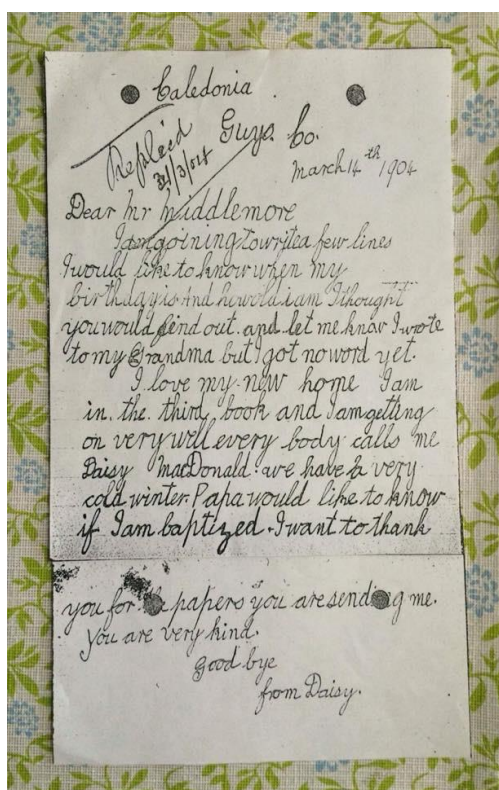 Caledonia
Guys. Co.
Replied
31/3/04
March 14th 1904
Dear Mr Middlemore
I am goining to write a few lines
I would like to know when my
birthday is And how old i am I thought
you would find out. and let me know I wrote
to my Grandma but I got no word yet.
I love my new home I am
in. the. third. book and I am getting
on very well every body calls me
Daisy MacDonald. we have a very
cold winter. Papa would like to know
if I am baptized. I want to thank
you for papers you are sending me.
You are very kind.
Good bye
from Daisy.